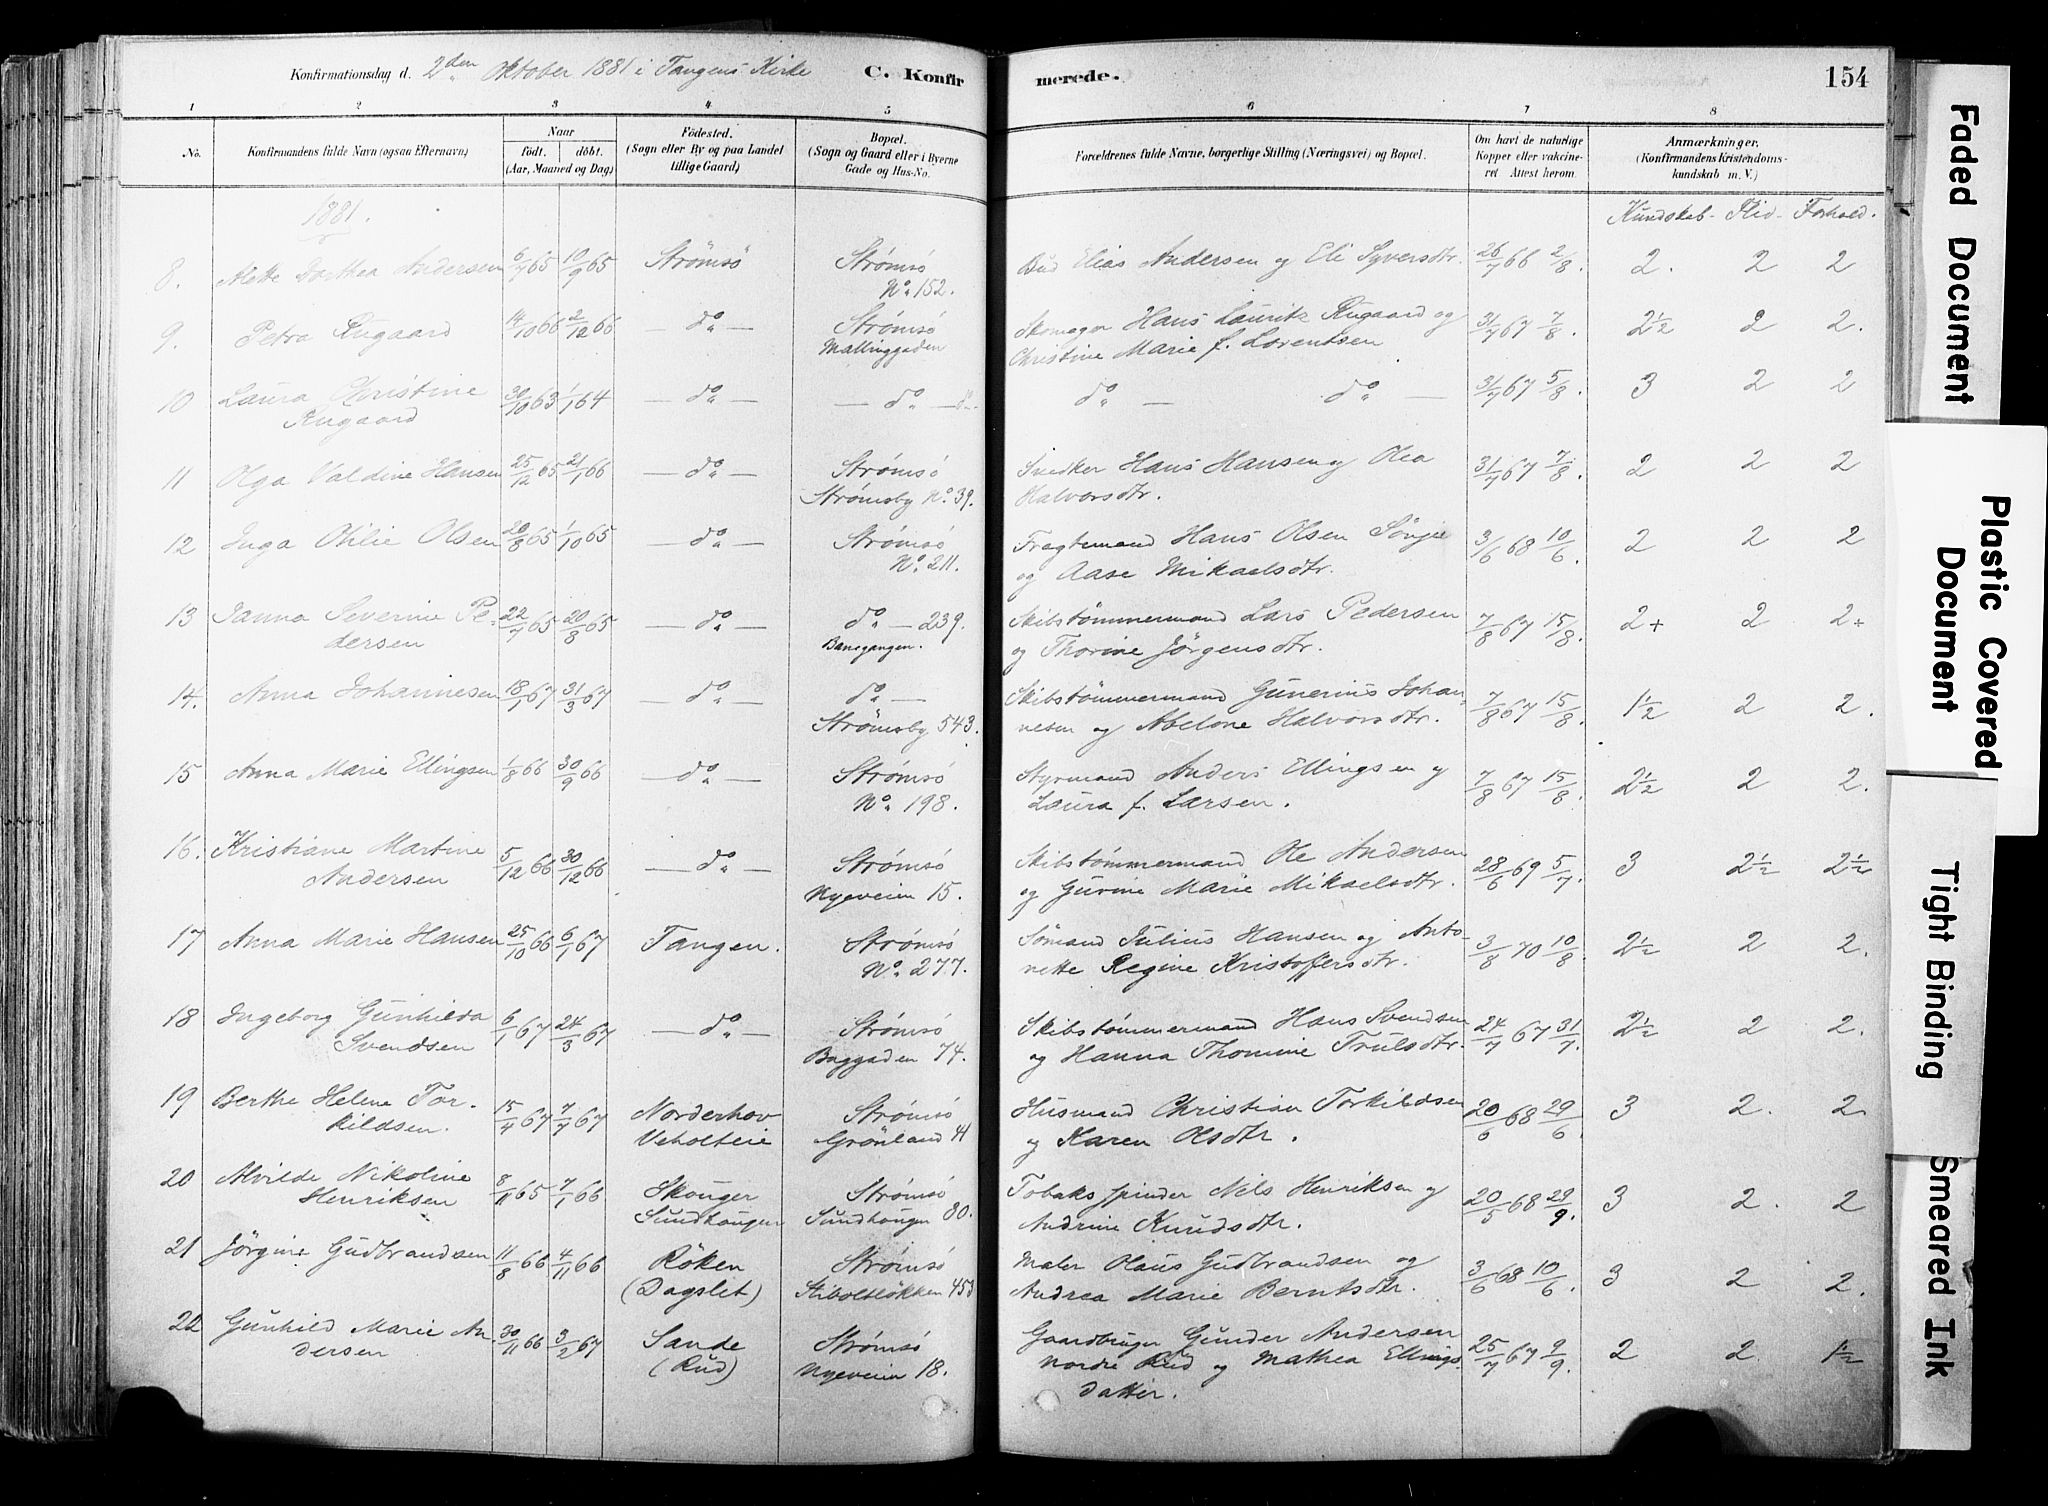 Konfirmationsdag d. 2den Oktober 1881 i Tangens Kirke C. Konfirmerede. 154
1 2 3 4 5 6 7 8
No. Konfirmandens fulde Navn (ogsaa Efternavn) Naar födt. döbt. (Aar, Maaned og Dag) Födested. (Sogn eller By og paa Landet tillige Gaard) Bopæl. (Sogn og Gaard eller i Byerne Gade og Hus-No. Forældrenes fulde Navne, borgerlige Stilling (Næringsvei) og Bopæl. Om havt de naturlige Kopper eller vakcineret Attest herom. Anmærkninger. (Konfirmandens Kristendomskundskab m. V.)
1881. Kundskab - Flid - Forhold.
8. Alette Dorthea Andersen 6/7 65 10/9 65 Strömsö Strømsö Bud Elias Andersen og Eli Syversdtr. 26/7 66 2/8. 2. 2 2
No. 152.
9. Petra Rugaard 14/10 66 2/12 66 — do — Strømsö Skomager Hans Lauritz Rugaard og 31/7 67 7/8. 2½ 2 2.
Mallinggaden Christine Marie f. Lorentsen
10 Laura Christine 30/10 63 1/1 64 — do — — do — do — do — do — 31/7 67 5/8. 3 2 2
Rugaard
11 Olga Valdine Hansen 25/12 65 21/1 66 — do — Strømsö Snedker Hans Hansen og Olea 31/7 67 7/8. 2 2 2
Strømsby No. 39. Halvorsdtr.
12 Inga Othilie Olsen 20/8 65 1/10 65 — do — Strømsö Fragtemand Hans Olsen 3/6 68 10/6. 2 2 2
No. 211. og Aase Mikaelsdtr.
13 Janna Severine Pe- 22/7 65 20/8 65 — do — do — 239. Skibstømmermand Lars Pedersen 7/8 67 15/8. 2+ 2 2+
dersen Banegangen. og Thorine Jörgensdtr.
14. Anna Johannesen 18/1 67 31/3 67 — do — do — Skibstømmermand Gunerius Johan- 7/8 67 15/8. 1½ 2 2.
Strömsby 543. nesen og Abelone Halvorsdtr.
15 Anna Marie Ellingsen 1/8 66 30/9 66 — do — Strømsö Styrmand Anders Ellingsen og 7/8 67 15/8. 2½ 2 2.
No. 198. Laura f. Larsen.
16. Kristiane Martine 5/12 66 30/12 66 — do — Strømsö Skibstømmermand Ole Andersen 28/6 69 5/7. 3 2½ 2½
Andersen Nyeveien 15. og Gurine Marie Mikaelsdtr.
17 Anna Marie Hansen 25/10 66 6/1 67 Tangen. Strømsö Sömand Julius Hansen og Anto- 3/8 70 10/8. 2½ 2 2.
No. 277. nette Regine Kristoffersdtr.
18 Ingeborg Gunhilda 6/1 67 24/3 67 — do — Strømsö Skibstømmermand Hans Svendsen 24/7 67 31/7. 2½ 2 2.
Svendsen Baggaden 74. og Hanna Thomine Trulsdtr.
19 Berthe Helene Tor- 15/4 67 7/7 67 Norderhov Strømsö Husmand Christian Torkildsen 20/6 68 29/6. 3 2. 2
kildsen. Veholteie Grönland 41 og Karen Olsdtr.
20 Alvilde Nikoline 8/11 65 7/1 66 Skouger Strømsö Tobakspinder Nils Henriksen og 20/5 68 29/9. 3 2. 2
Henriksen Sundhougen Sundhougen 80. Andrine Knudsdtr.
21 Jörgine Gudbrandsen 11/8 66 4/11 66 Röken Strømsö Maler Olaus Gudbrandsen og 3/6 68 10/6. 3 2 2.
(Dagslet) Stiboltløkken 453 Andrea Marie Berntsdtr.
22 Gunhild Marie An- 30/11 66 3/2 67 Sande Strømsö Gaardbruger Gunder Andersen 25/7 67 9/9. 2 2. 1½
dersen (Rud) Nyeveien 18. Nordre Rud og Mathea Ellings-
datter.
Faded Document
Plastic Covered Document
Tight Binding
Smeared Ink